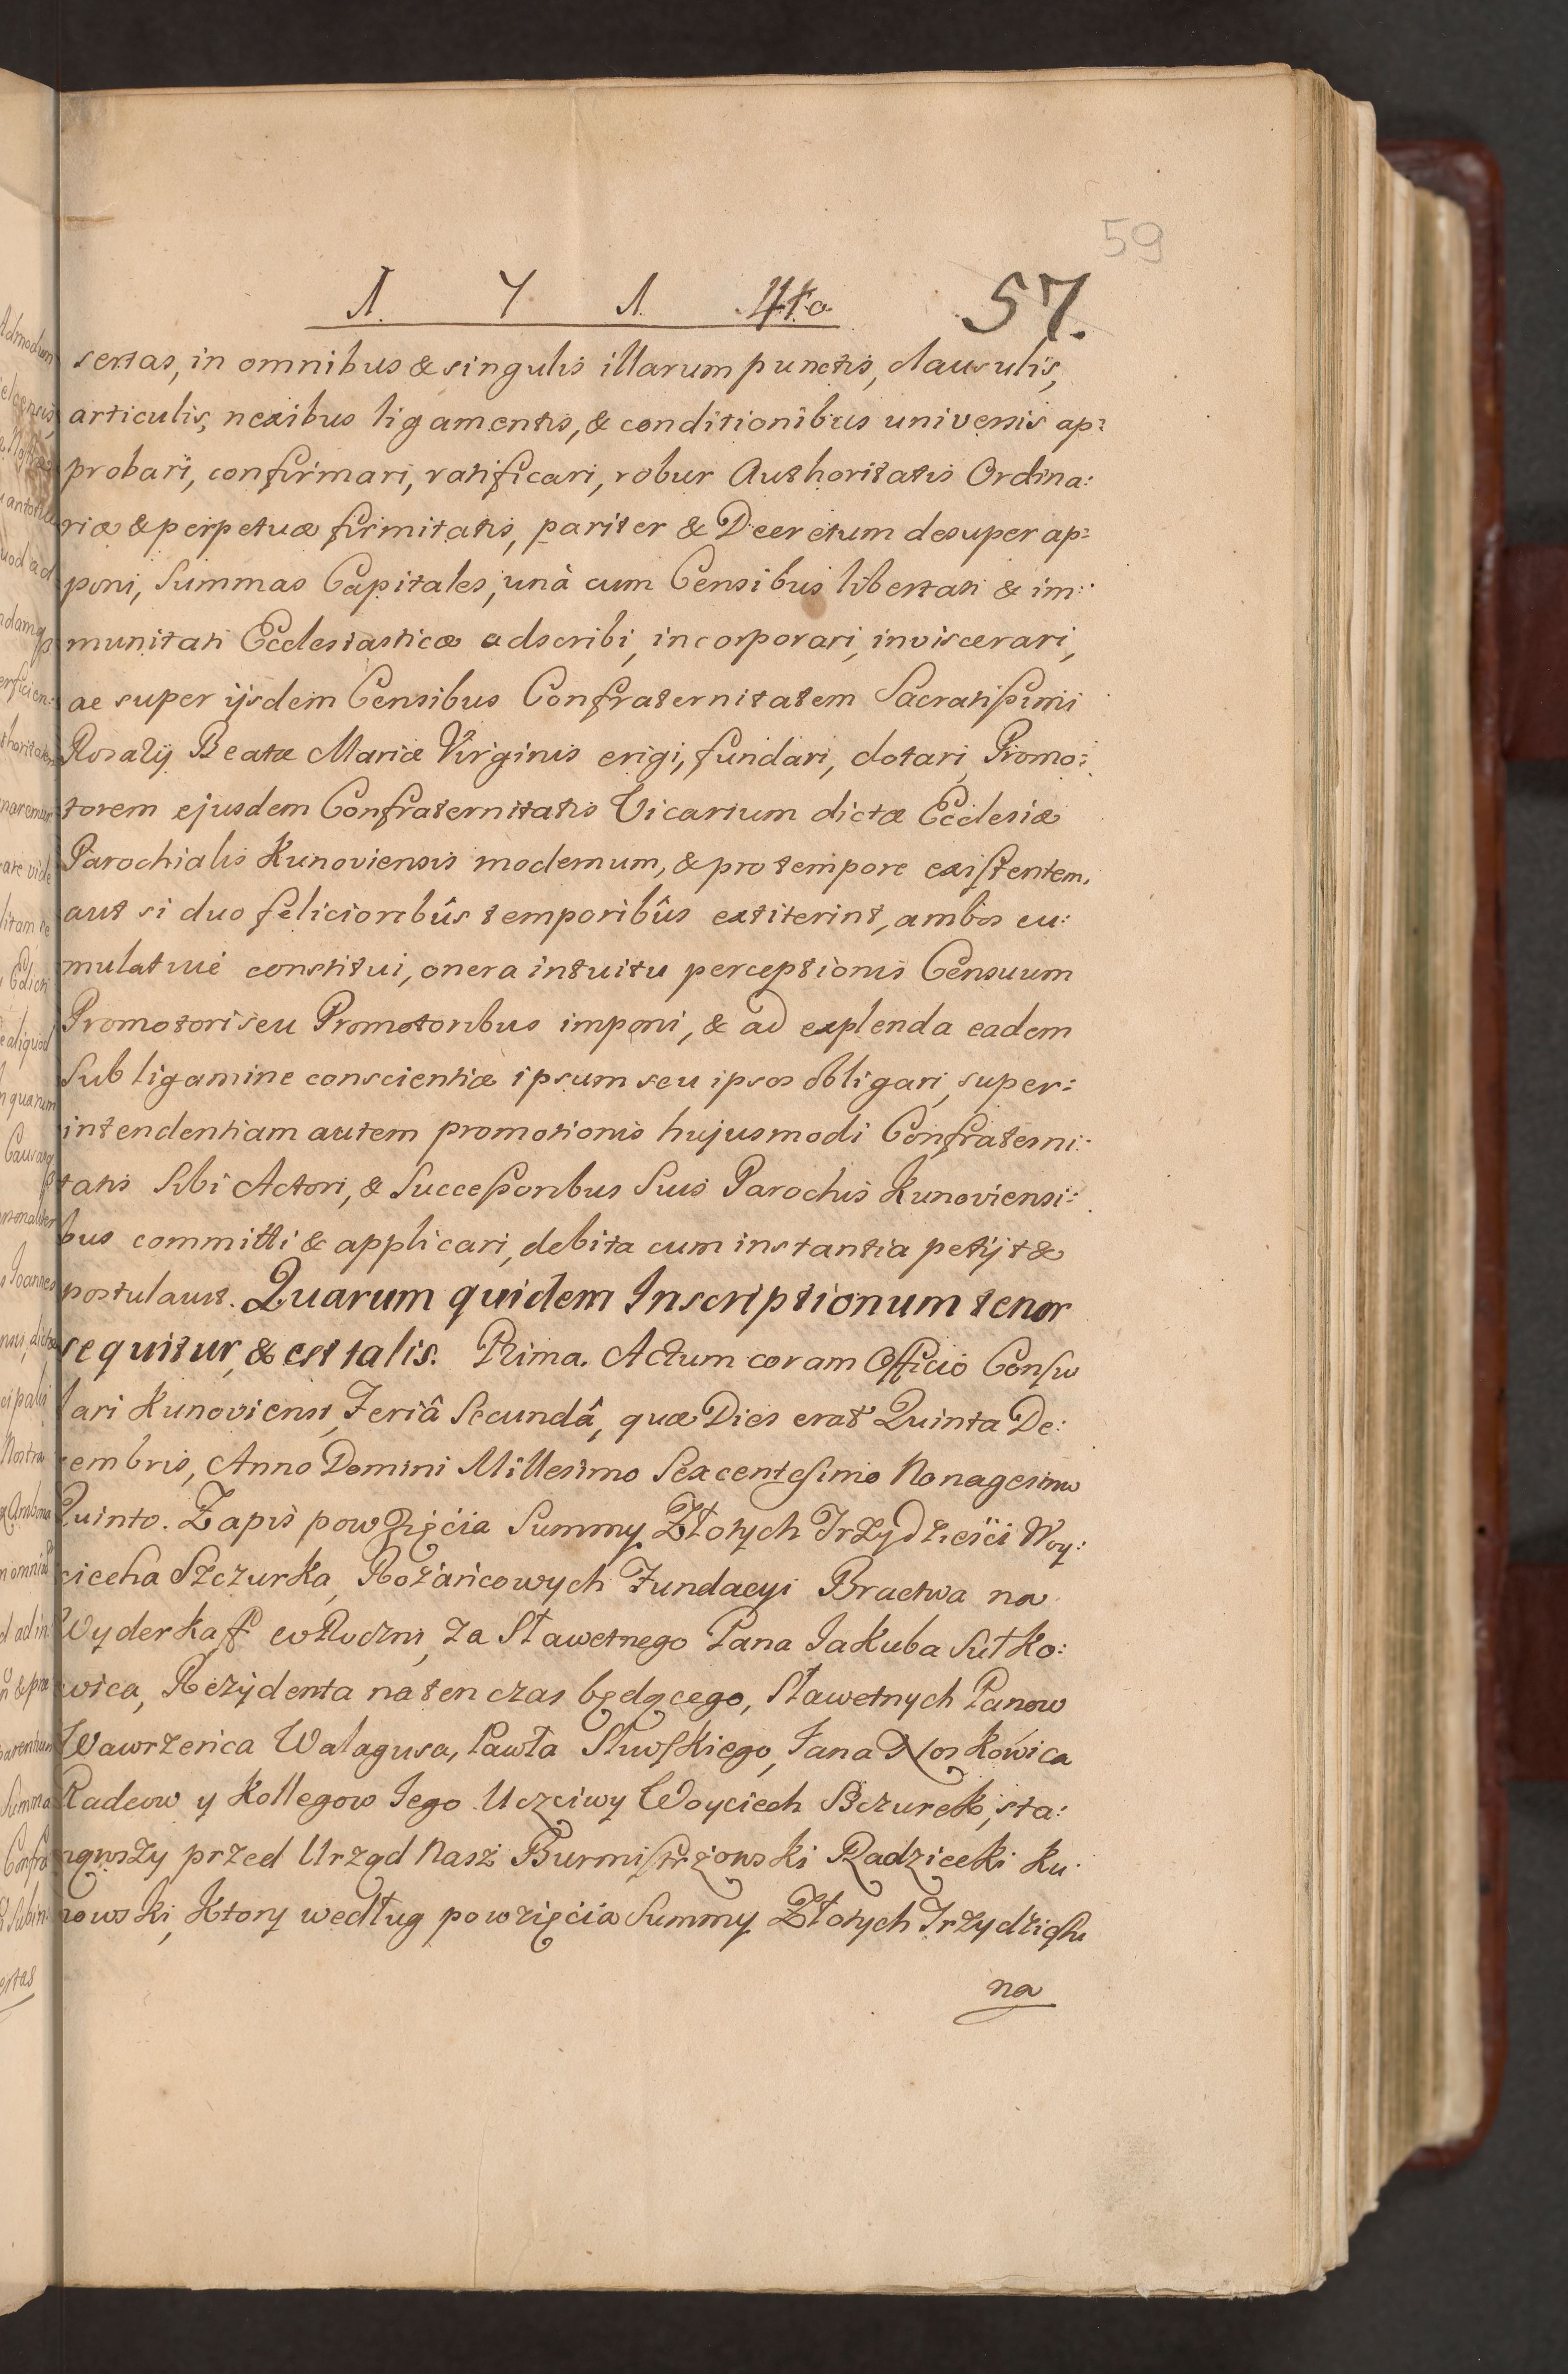 59
1 7 1 4to 57.
sertas, in omnibus & singulis illarum punctis, clausulis,
articulis, nexibus ligamentis, & conditionibus universis ap:
probari, confirmari, ratificari, robur Authoritatis Ordina:
riæ & perpetuæ firmitatis, pariter & Decretum desuper ap:
poni, Summas Capitales, unà cum Censibus libertati & im:
munitati Ecclesiasticæ adscribi, incorporari, inviscerari,
ac super ijsdem Censibus Confraternitatem Sacratißimi
Rosarij Beatæ Mariæ Virginis erigi, fundari, dotari, Promo:
torem ejusdem Confraternitatis Vicarium dictæ Ecclesiæ
Parochialis Kunoviensis modernum, & pro tempore existentem,
aut si duo felicioribûs temporibûs extiterint, ambos cu:
mulativè constitui, onera intuitu perceptionis Censuum
Promotori seu Promotoribus imponi, & ad explenda eadem
Sub ligamine conscientiæ ipsum seu ipsos obligari, super:
intendentiam autem promotionis hujusmodi Confraterni:
tatis Sibi Actori, & Succeßoribus Suis Parochis Kunoviensi:
bus committi & applicari, debita cum instantia petijt &
postulavit. Quarum quidem Inscriptionum tenor
sequitur, & est talis. Prima. Actum coram Officio Consu
lari Kunoviensi, Feriâ Secundâ, quæ Dies erat Quinta De:
cembris, Anno Domini Millesimo Sexcentesimo Nonagesimo
Quinto. Zapis powzięćia Summy Złotych Trzydźieśći Woy:
ciecha Szczurka, Rożańcowych Fundacyi Bractwa na
Wyderkaff coRoczni, za Sławetnego Pana Jakuba Sutko:
wica, Rezydenta na ten czas będącego, Sławetnych Panow
Wawrzeńca Walagusa, Pawła Sluwskiego, Jana Noskowica
Radcow y Kollegow Jego. Uczciwy Woyciech Szczurek, sta:
nąwszy przed Urząd Nasz Burmistrzowski Radziecki Ku
nowski, Ktory według powzięćia Summy Złotych Trzydźiestu
na